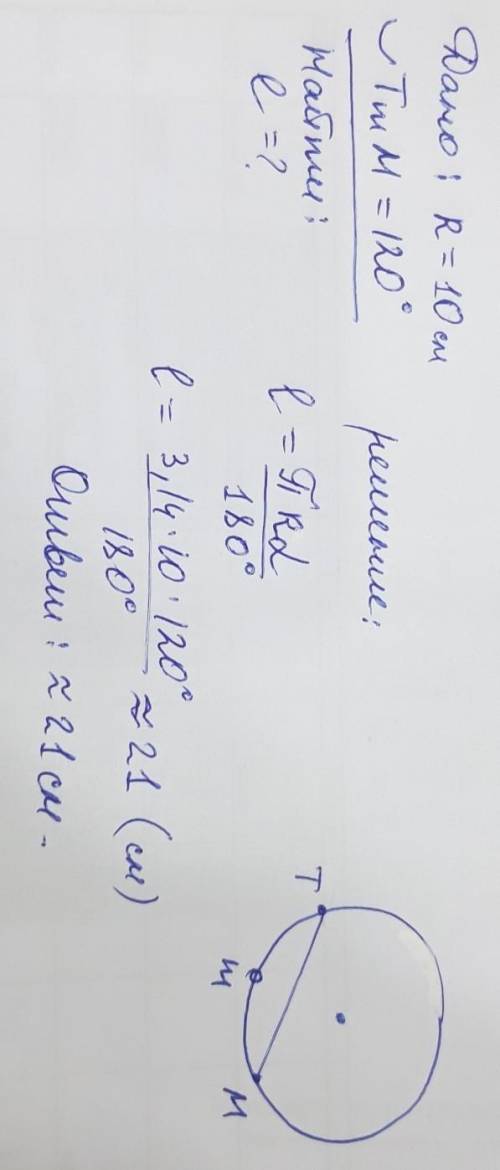 Дано: R = 10 см
◡TmM = 120°
Найти:
l = ?
решение:
l = πRα / 180°
l = 3,14·10·120° / 180° ≈ 21 (см)
Ответ: ≈ 21 см.
T
m
M